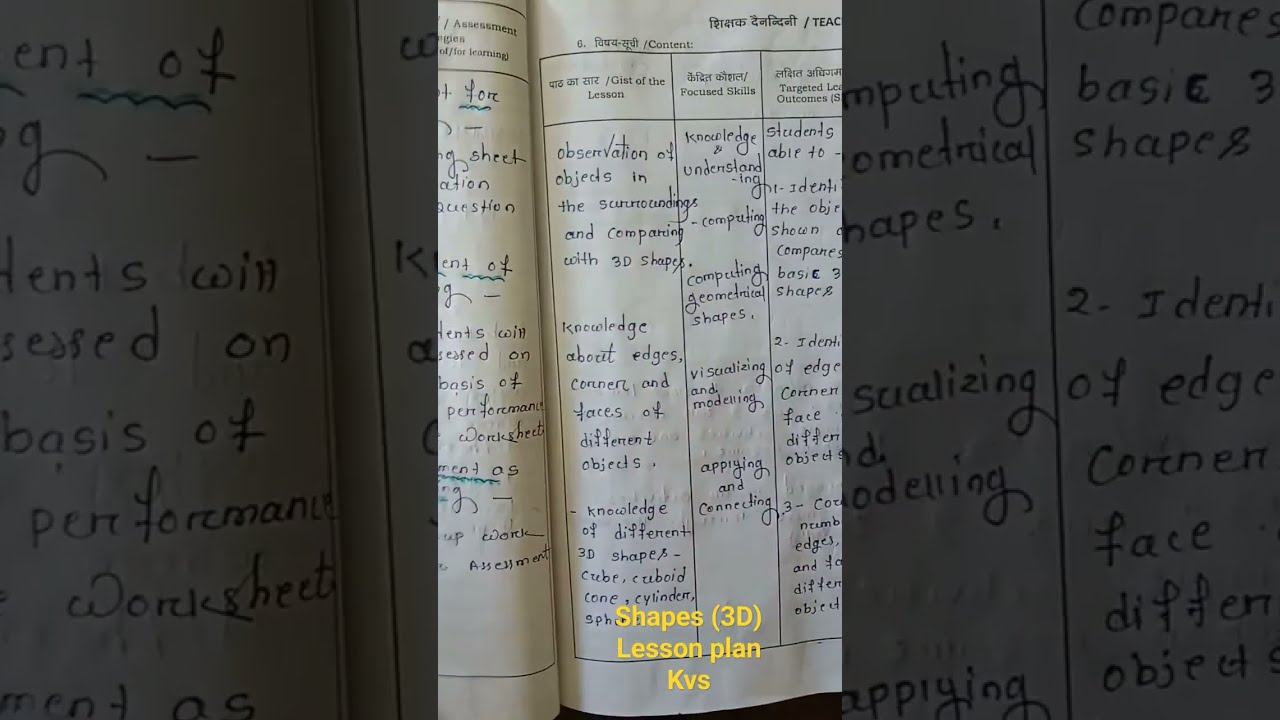 / Assessment
(of/for learning)
for
sheet
question
of
will
on
basis of
performance
worksheet
as
work
Assessment
शिक्षक दैनन्दिनी / TEAC
6. विषय-सूची /Content:
पाठ का सार /Gist of the
Lesson
observation of
objects in
the surroundings
and comparing
with 3D shapes.
Knowledge
about edges,
corner, and
faces of
different
objects.
- Knowledge
of different
3D shapes -
cube, cuboid
cone, cylinder,
केंद्रित कौशल/
Focused Skills
Knowledge
&
understand
-ing
-computing
computing
geometrical
shapes.
visualizing
and
modelling
applying
and
connecting
लक्षित अधिगम
Targeted
Outcomes
students
able to -
1- Identi
the obje
shown
compares
basic 3
shapes
2- Identi
of edge
corner
face
differ
objects
3-
numb
edges,
and fa
differ
object
Shapes (3D)
Lesson plan
Kvs